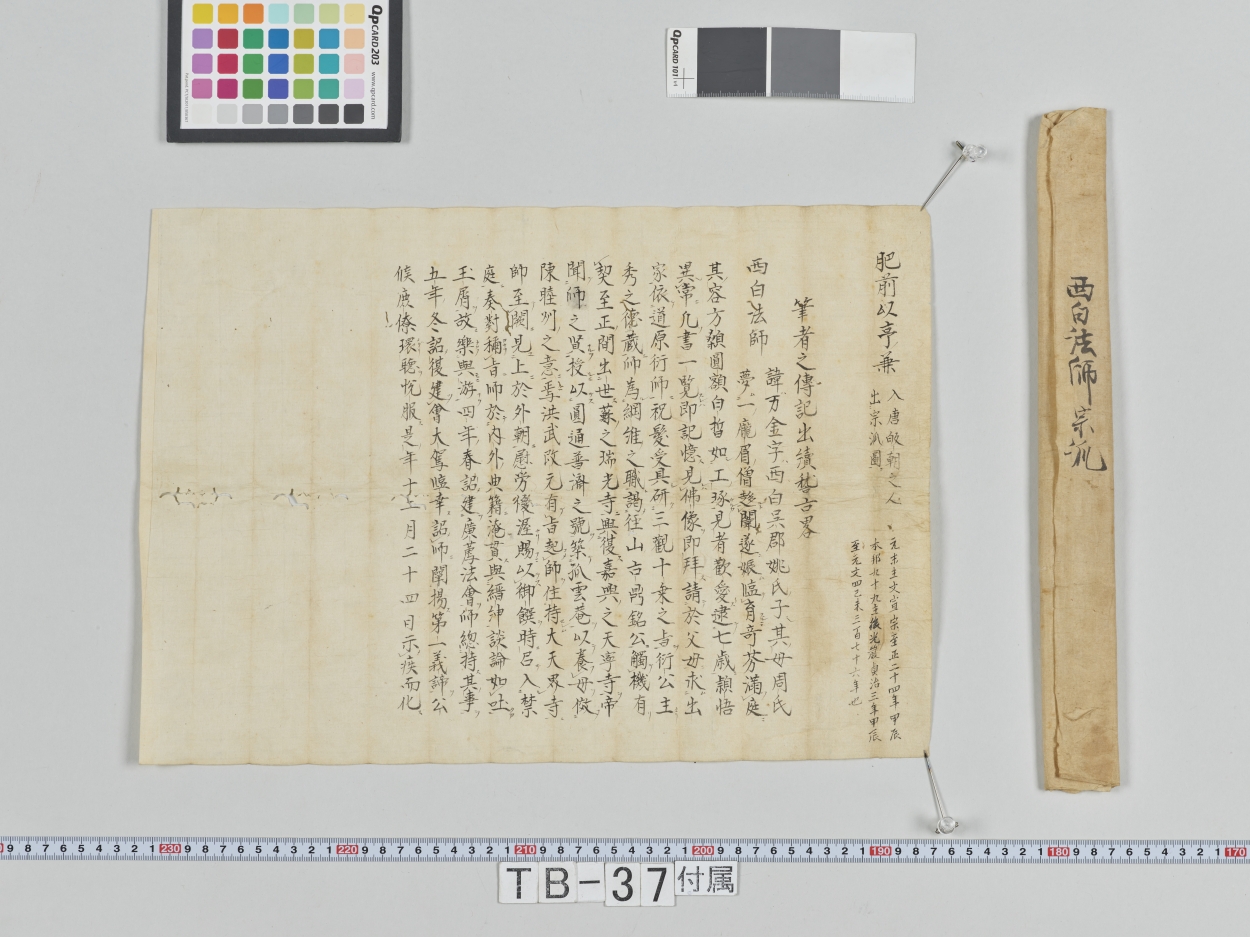 西白法師宗派
肥前以亨兼
入唐敵朝之人
出宗派圖
元末主文宣宗至正二十四年甲辰
本邦九十九主後光嚴貞治三年甲辰
至元文四己未三百七十六年也
筆者之傳記出續稽古畧
西白法師
諱万金字西白呉郡姚氏子其母周氏
夢一龐眉僧趁闌遂娠臨育竒芬滿庭
其容方顙圓額白皙如工琢見者歡愛逮七歳頴悟
異常凡書一覧即記憶見佛像即拜請於父母求出
家依道原衍師祝髪受具研三觀十乗之旨衍公主
秀之德藏師為綱維之職謁徃山古鼎銘公觸機有
契至正間出世蘇之瑞光寺與復嘉興之天寧寺帝
聞師之賢授以圓通普濟之號築孤雲菴以養母倣
陳睦州之意焉洪武改元有旨起師住持大天界寺
師至闕見上於外朝慰労後渥賜以御饌時召入禁
庭奏對穪旨師於内外典籍淹貫與縉紳談論如吐
玉屑故樂與游四年春詔建廣薦法會師總持其事
五年冬詔復建會大駕臨幸詔師闡揚第一義諦公
候庶僚環聴悦服是年十二月二十四日示疾而化
QpCARD 203
www.qpcard.com
QpCARD 101
TB-37付属